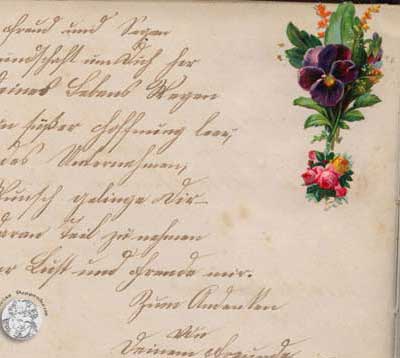 Freud und Segen
um Dich her
eines Lebens Wegen
süßer Hoffnung leer,
Unternehmen,
Wunsch gelinge Dir
daran Teil zu nehmen
Lust und Freude mir.
Zum Andenken
von
Deinem Freunde